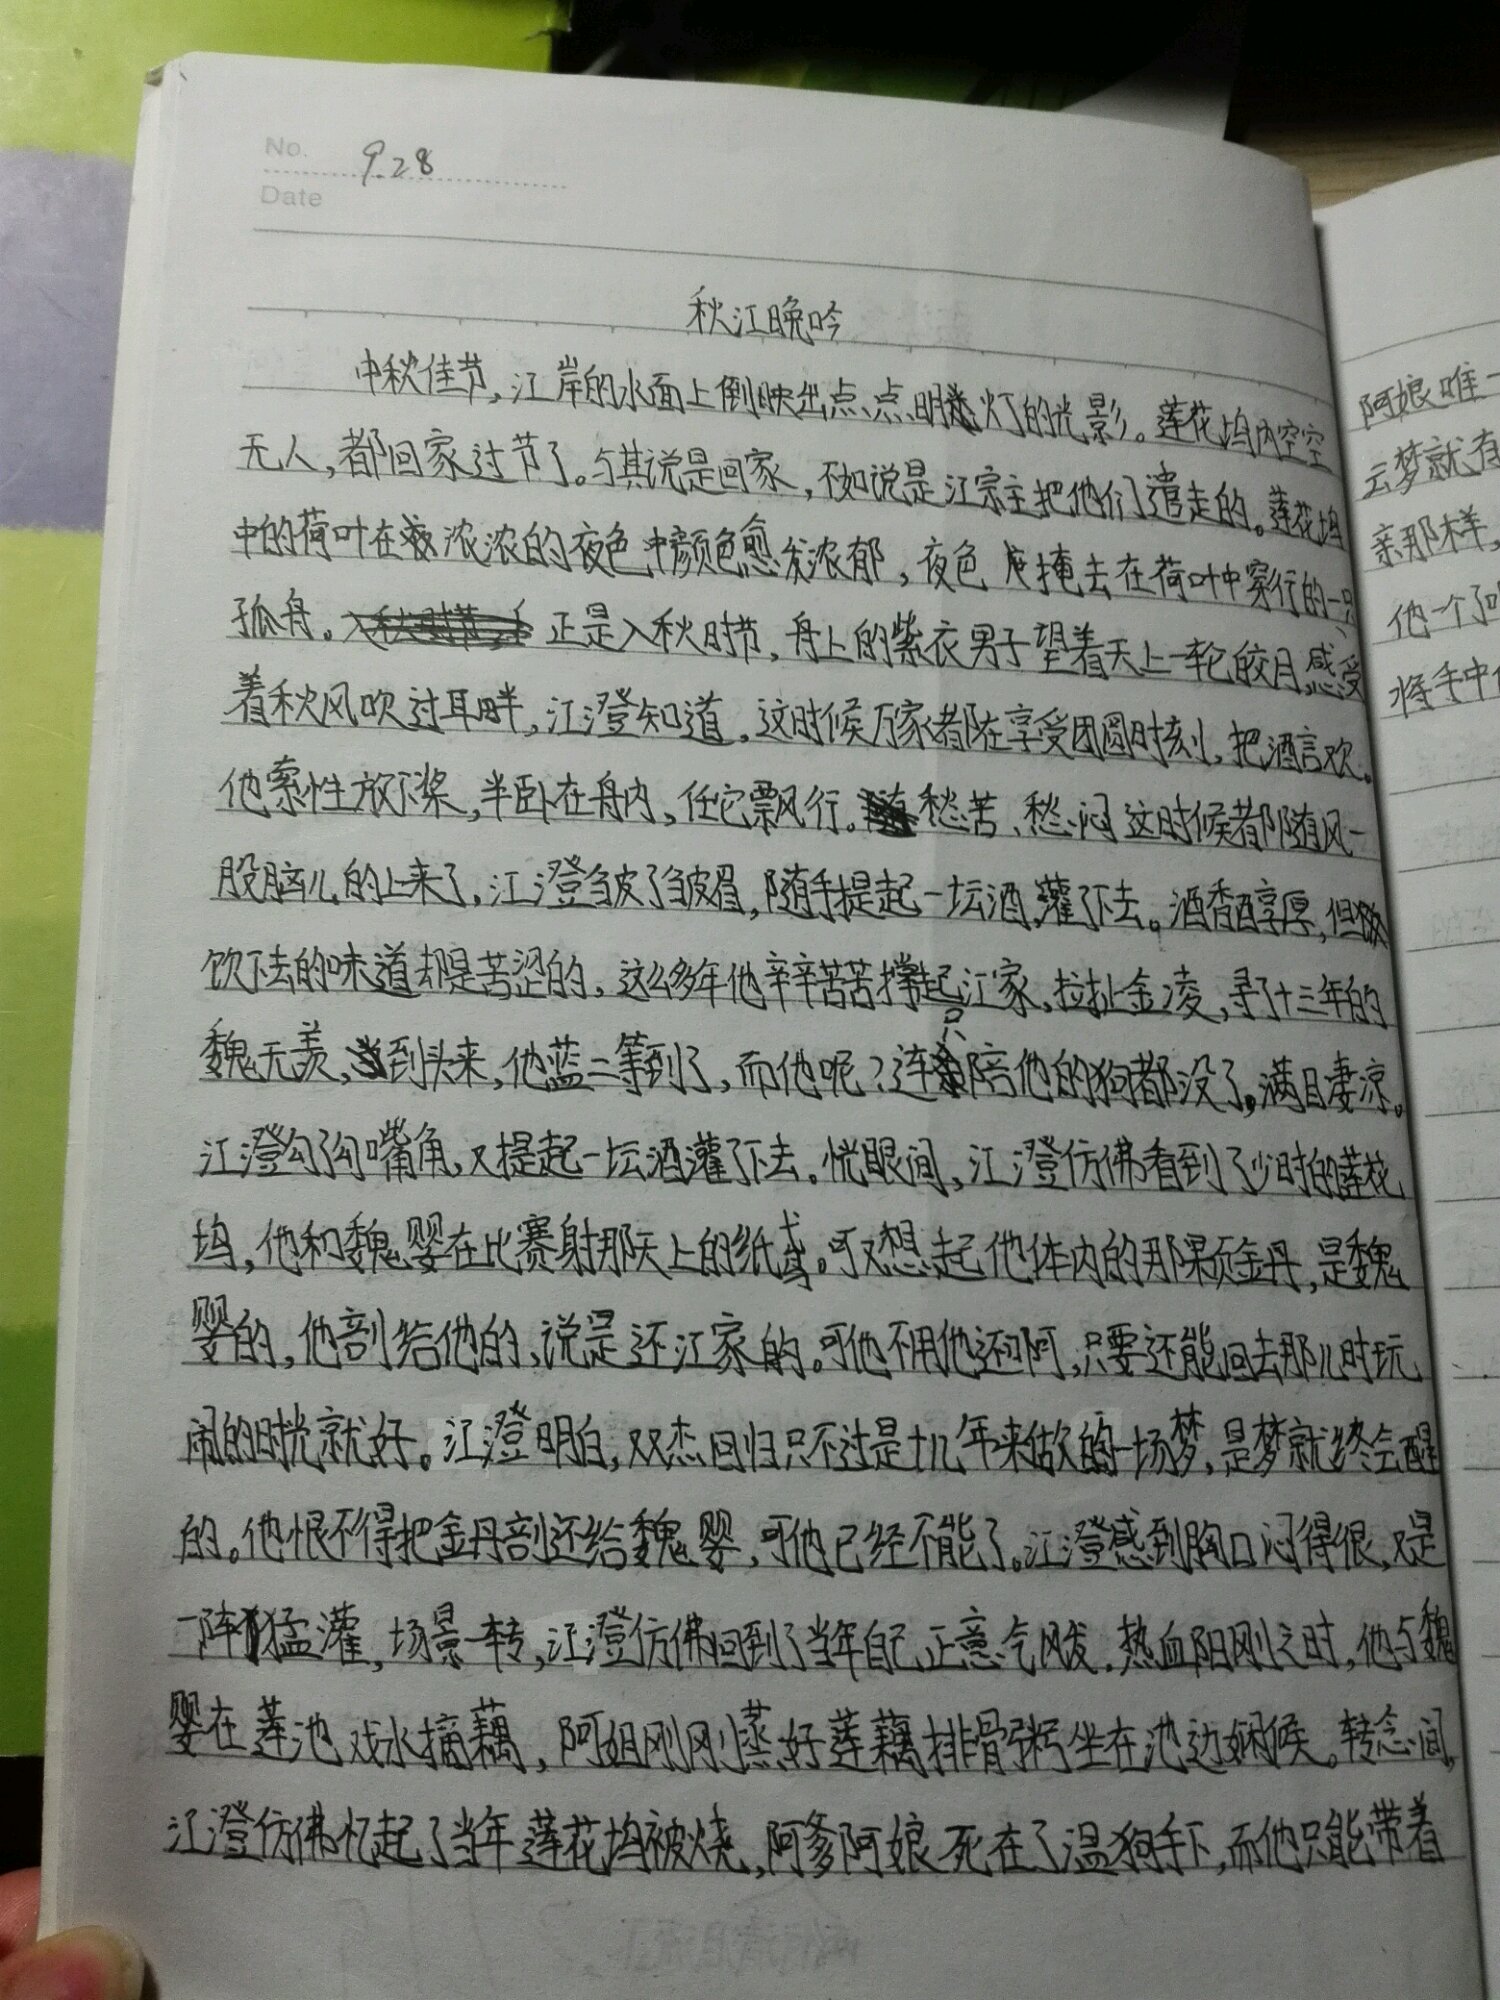 No. 9.28
Date
秋江晚吟
中秋佳节,江岸的水面上倒映出点点明灯的光影。莲花坞内空空
无人,都回家过节了。与其说是回家,不如说是江宗主把他们遣走的。莲花坞
中的荷叶在浓浓的夜色中颜色愈发浓郁,夜色掩去在荷叶中穿行的一只
孤舟。正是入秋时节,舟上的紫衣男子望着天上一轮皎月,感受
着秋风吹过耳畔,江澄知道,这时候万家都在享受团圆时刻,把酒言欢。
他索性放下桨,半卧在舟内,任它飘行。愁苦、愁闷这时候都随风一
股脑儿的上来了,江澄皱了皱眉,随手提起一坛酒,灌了下去。酒香醇厚,但
饮下去的味道却是苦涩的,这么多年他辛辛苦苦撑起江家,拉扯金凌,寻了十三年的
魏无羡,到头来,他蓝二等到了,而他呢?连只陪他的狗都没了,满目凄凉。
江澄勾了勾嘴角,又提起一坛酒灌了下去。恍眼间,江澄仿佛看到了少时的莲花
坞,他和魏婴在比赛射那天上的纸鸢。可又想起他体内的那颗金丹,是魏
婴的,他剖给他的,说是还江家的。可他不用他还啊,只要还能回去那儿时玩
闹的时光就好。江澄明白,双杰回归只不过是十几年来做的一场梦,是梦就终会醒
的。他恨不得把金丹剖还给魏婴,可他已经不能了。江澄感到胸口闷得很,又是
一阵猛灌,场景一转,江澄仿佛回到了当年自己正意气风发,热血阳刚之时,他与魏
婴在莲池戏水摘藕,阿姐刚刚蒸好莲藕排骨粥坐在池边娴候。转念间,
江澄仿佛忆起了当年莲花坞被烧,阿爹阿娘死在了温狗手下,而他只能带着
阿娘唯一
云梦就有
亲那样,
他一个
将手中